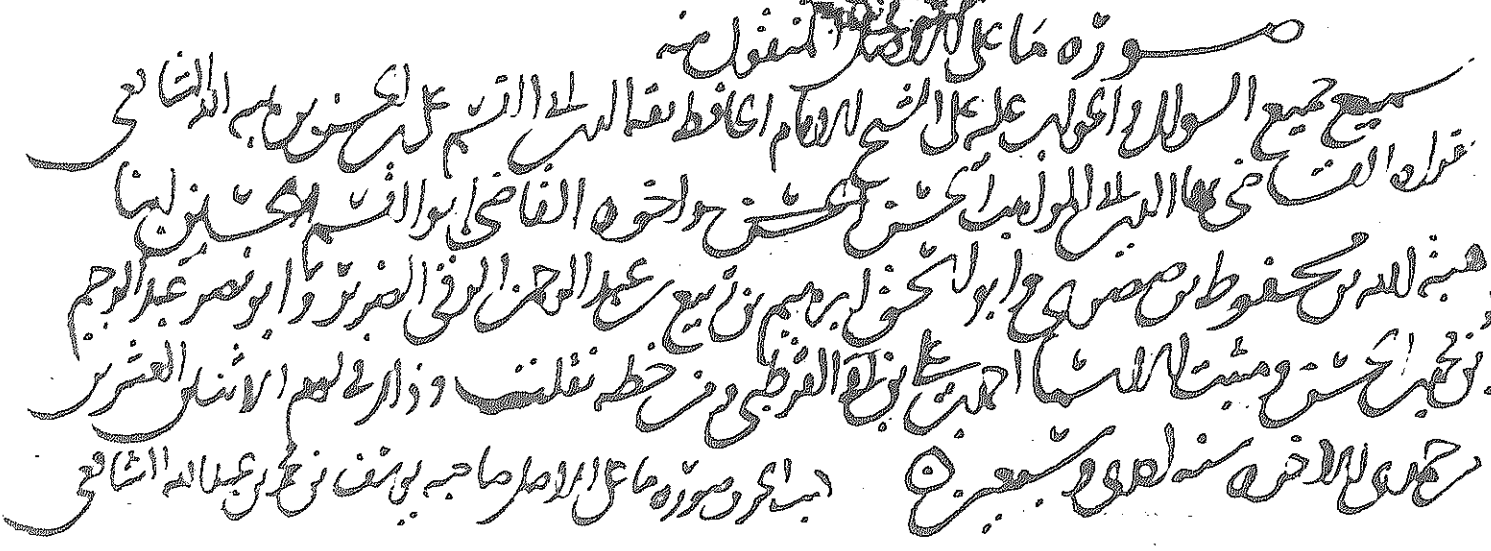 صورة ما على الأصل المنقول منه
سمع جميع السؤال والجواب عليه على الشيخ الامام الحافظ ثقة الدين ابي القسم علي بن الحسن بن هبة الله الشافعي
القاضي بها الدين ابي المواهب الحسن واخوه القاضي ابو القسم الحسين ابنا
هبة الله بن محفوظ بن صصرى وابو اسحق ابرهيم بن عبد الرحمن الرقي الضرير وابو نصر عبد الرحيم
بن محمد بن الحسن ومثبت الاسما احمد بن علي بن القرطبي ومن خطه نقلت وذلك في يوم الاثنين العشرين
جمادى الاخرة سنه احدى وسبعين
صورة ما على الاصل صاحبه يوسف بن محمد بن عبد الله الشافعي